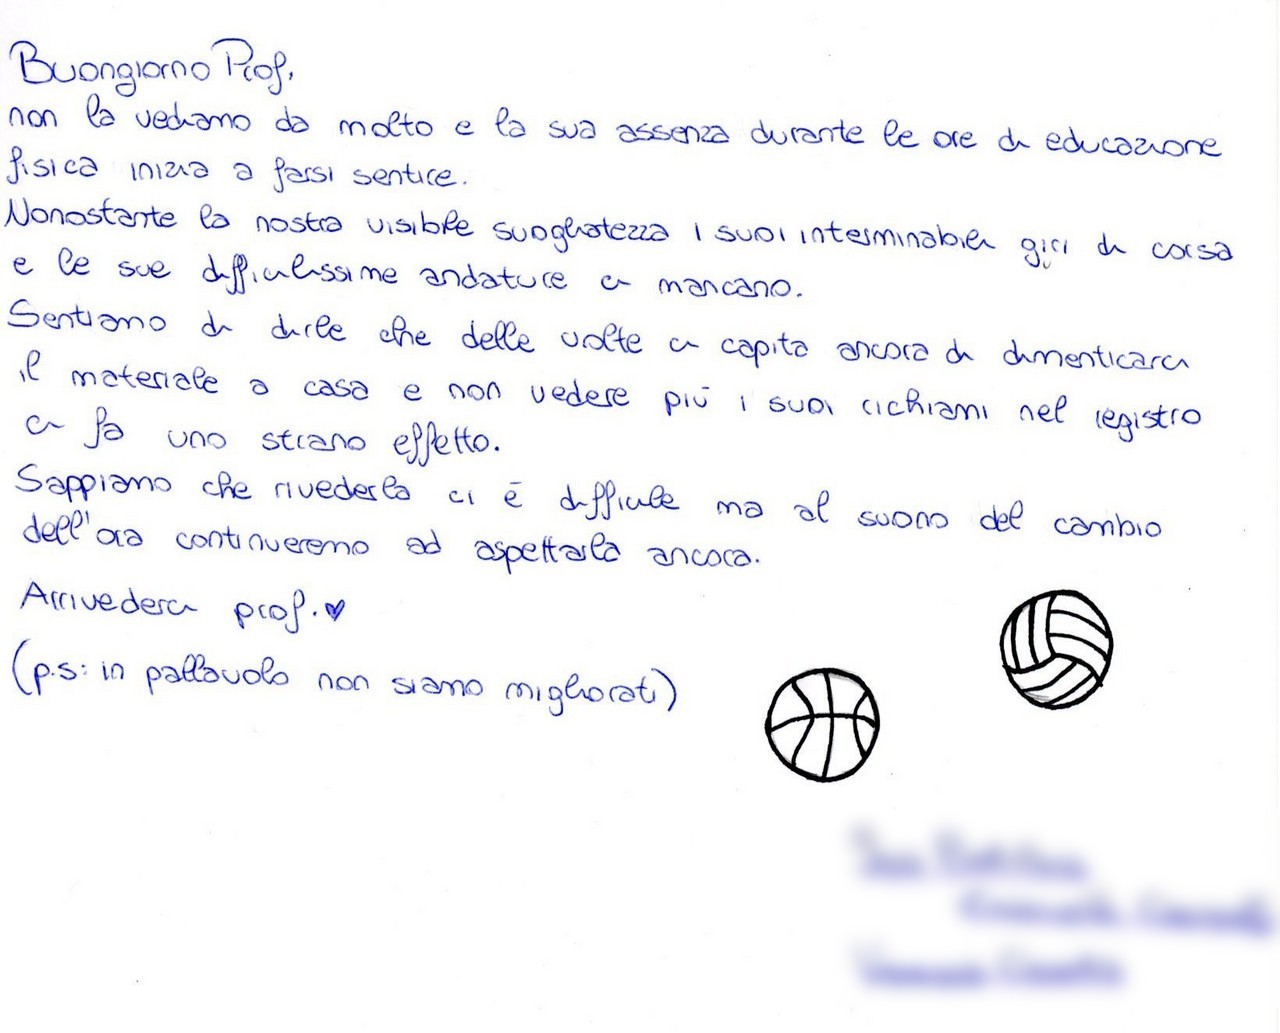 Buongiorno Prof,
non la vediamo da molto e la sua assenza durante le ore di educazione
fisica inizia a farsi sentire.
Nonostante la nostra visibile svogliatezza i suoi interminabili giri di corsa
e le sue difficilissime andature ci mancano.
Sentiamo di dirle che delle volte ci capita ancora di dimenticarci
il materiale a casa e non vedere più i suoi richiami nel registro
ci fa uno strano effetto.
Sappiamo che rivederla ci è difficile ma al suono del cambio
dell'ora continueremo ad aspettarla ancora.
Arrivederci prof. ♥
(p.s: in pallavolo non siamo migliorati)